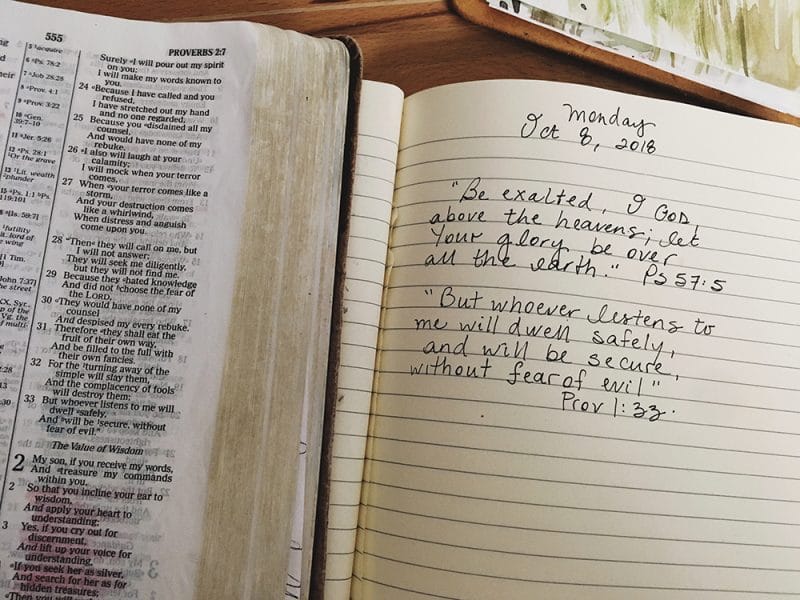 555
PROVERBS 2:7
5 ¹acquire
6 ᵃPs. 78:2
7 ᵃJob 28:28
8 ᵃProv. 4:1
9 ᵃProv. 3:22
10 ᵃGen.
39:7-10
11 ᵃJer. 5:26
12 ᵃPs. 28:1
¹Or the grave
13 ¹Lit. wealth
²plunder
Surely ᵃI will pour out my spirit
on you;
I will make my words known to
you.
24 ᵃBecause I have called and you
refused,
I have stretched out my hand
and no one regarded,
25 Because you ᵃdisdained all my
counsel,
And would have none of my
rebuke,
26 ᵃI also will laugh at your
calamity;
I will mock when your terror
comes,
27 When ᵃyour terror comes like a
storm,
And your destruction comes
like a whirlwind,
When distress and anguish
come upon you.
28 "Then ᵃthey will call on me, but
I will not answer;
They will seek me diligently,
but they will not find me.
29 Because they ᵃhated knowledge
And did not ᵇchoose the fear of
the LORD,
30 ᵃThey would have none of my
counsel
And despised my every rebuke.
31 Therefore ᵃthey shall eat the
fruit of their own way,
And be filled to the full with
their own fancies.
32 For the ¹turning away of the
simple will slay them,
And the complacency of fools
will destroy them;
33 But whoever listens to me will
dwell ᵃsafely,
And ᵇwill be ¹secure, without
fear of evil."
The Value of Wisdom
2 My son, if you receive my words,
And ᵃtreasure my commands
within you,
2 So that you incline your ear to
wisdom,
And apply your heart to
understanding;
3 Yes, if you cry out for
discernment,
And lift up your voice for
understanding,
ᵃIf you seek her as silver,
And search for her as for
hidden treasures;
Monday
Oct 8, 2018
"Be exalted, O GOD,
above the heavens; let
Your glory be over
all the earth." Ps 57:5
"But whoever listens to
me will dwell safely,
and will be secure,
without fear of evil"
Prov 1:33.